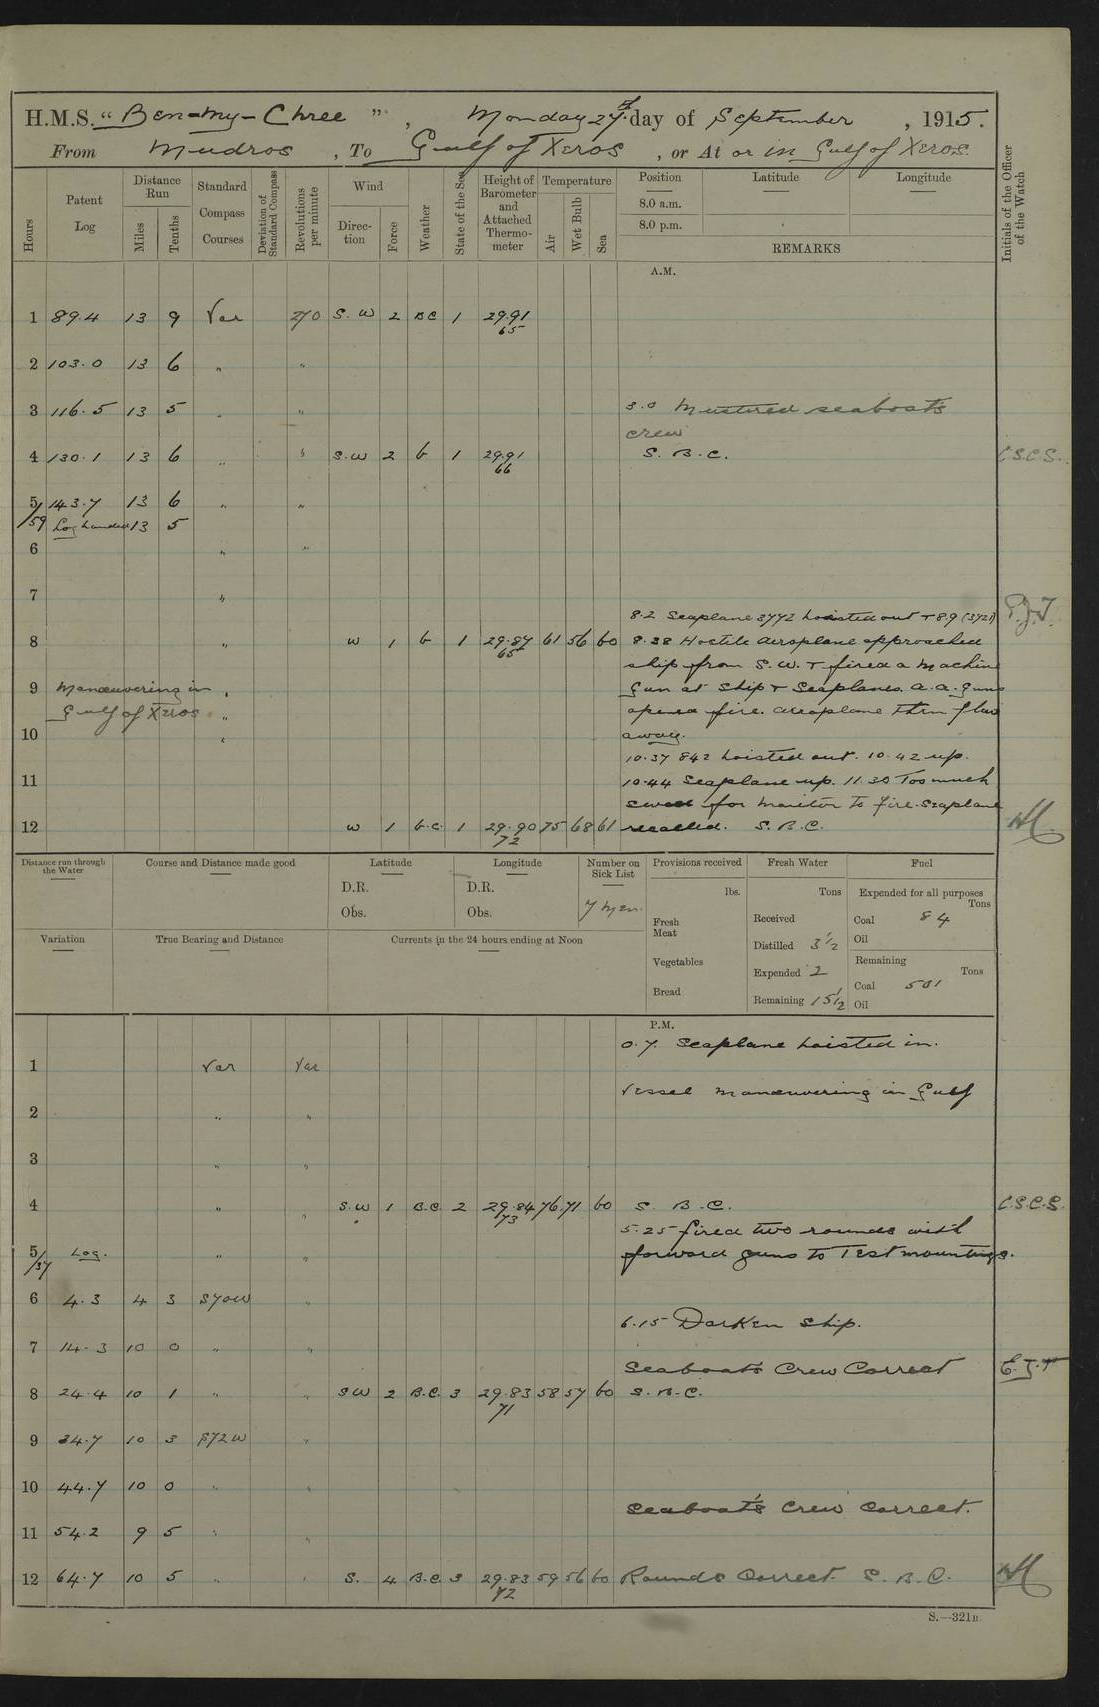 H.M.S. “ Ben-my-Chree ” , Monday 27th day of September , 1915.
From Mudros , To Gulf of Xeros , or At or in Gulf of Xeros.
Hours
Patent Log
Distance Run
Miles
Tenths
Standard Compass Courses
Deviation of Standard Compass
Revolutions per minute
Wind
Direction
Force
Weather
State of the Sea
Height of Barometer and Attached Thermometer
Temperature
Air
Wet Bulb
Sea
Position
8.0 a.m.
8.0 p.m.
Latitude
Longitude
REMARKS
Initials of the Officer of the Watch
A.M.
1 89.4 13 9 Var 270 S.W 2 BC 1 29.91
65
2 103.0 13 6 " "
3 116.5 13 5 " " 3.0 Mustured seaboat's
crew
4 130.1 13 6 " " S.W 2 b 1 29.91 S.B.C. C.S.C.S.
66
5 143.7 13 6 " "
/59 Log handed 13 5
6 " "
7 "
8.2 Seaplane 3772 hoisted out + 8.9 (3721)
8 " W 1 b 1 29.87 61 56 60 8.38 Hostile aeroplane approached
65
ship from S.W. + fired a machine
9 Manœuvering in " gun at ship + seaplanes. A.A. guns
Gulf of Xeros " opened fire. Aeroplane then flew
10 " away.
10.37 842 hoisted out. 10.42 up.
11 10.44 Seaplane up. 11.30 Too much
swell for monitor to fire. Seaplane
12 W 1 b.c. 1 29.90 75 68 61 recalled. S.B.C.
72
Distance run through the Water
Course and Distance made good
Latitude
D.R.
Obs.
Longitude
D.R.
Obs.
Number on Sick List
7 men.
Provisions received
lbs.
Fresh Meat
Vegetables
Bread
Fresh Water
Tons
Received
Distilled 3½
Expended 2
Remaining 15½
Fuel
Expended for all purposes
Tons
Coal 84
Oil
Remaining
Tons
Coal 501
Oil
Variation
True Bearing and Distance
Currents in the 24 hours ending at Noon
P.M.
0.7. Seaplane hoisted in.
1 Var Var
Vessel manœuvering in Gulf
2 " "
3 " "
4 " " S.W 1 B.C. 2 29.84 76 71 60 S.B.C. C.S.C.S.
73
5.25 fired two rounds with
5/37 Log. " " forward guns to test mountings.
6 4.3 4 3 S70W "
6.15 Darken Ship.
7 14.3 10 0 " "
Seaboats Crew Correct E.J.T
8 24.4 10 1 " " SW 2 B.C. 3 29.83 58 57 60 S.B.C.
71
9 34.7 10 3 S72W "
10 44.7 10 0 " "
Seaboat's Crew Correct.
11 54.2 9 5 " "
12 64.7 10 5 " " S. 4 B.C. 3 29.83 59 56 60 Rounds Correct S.B.C.
72
S.—321B.